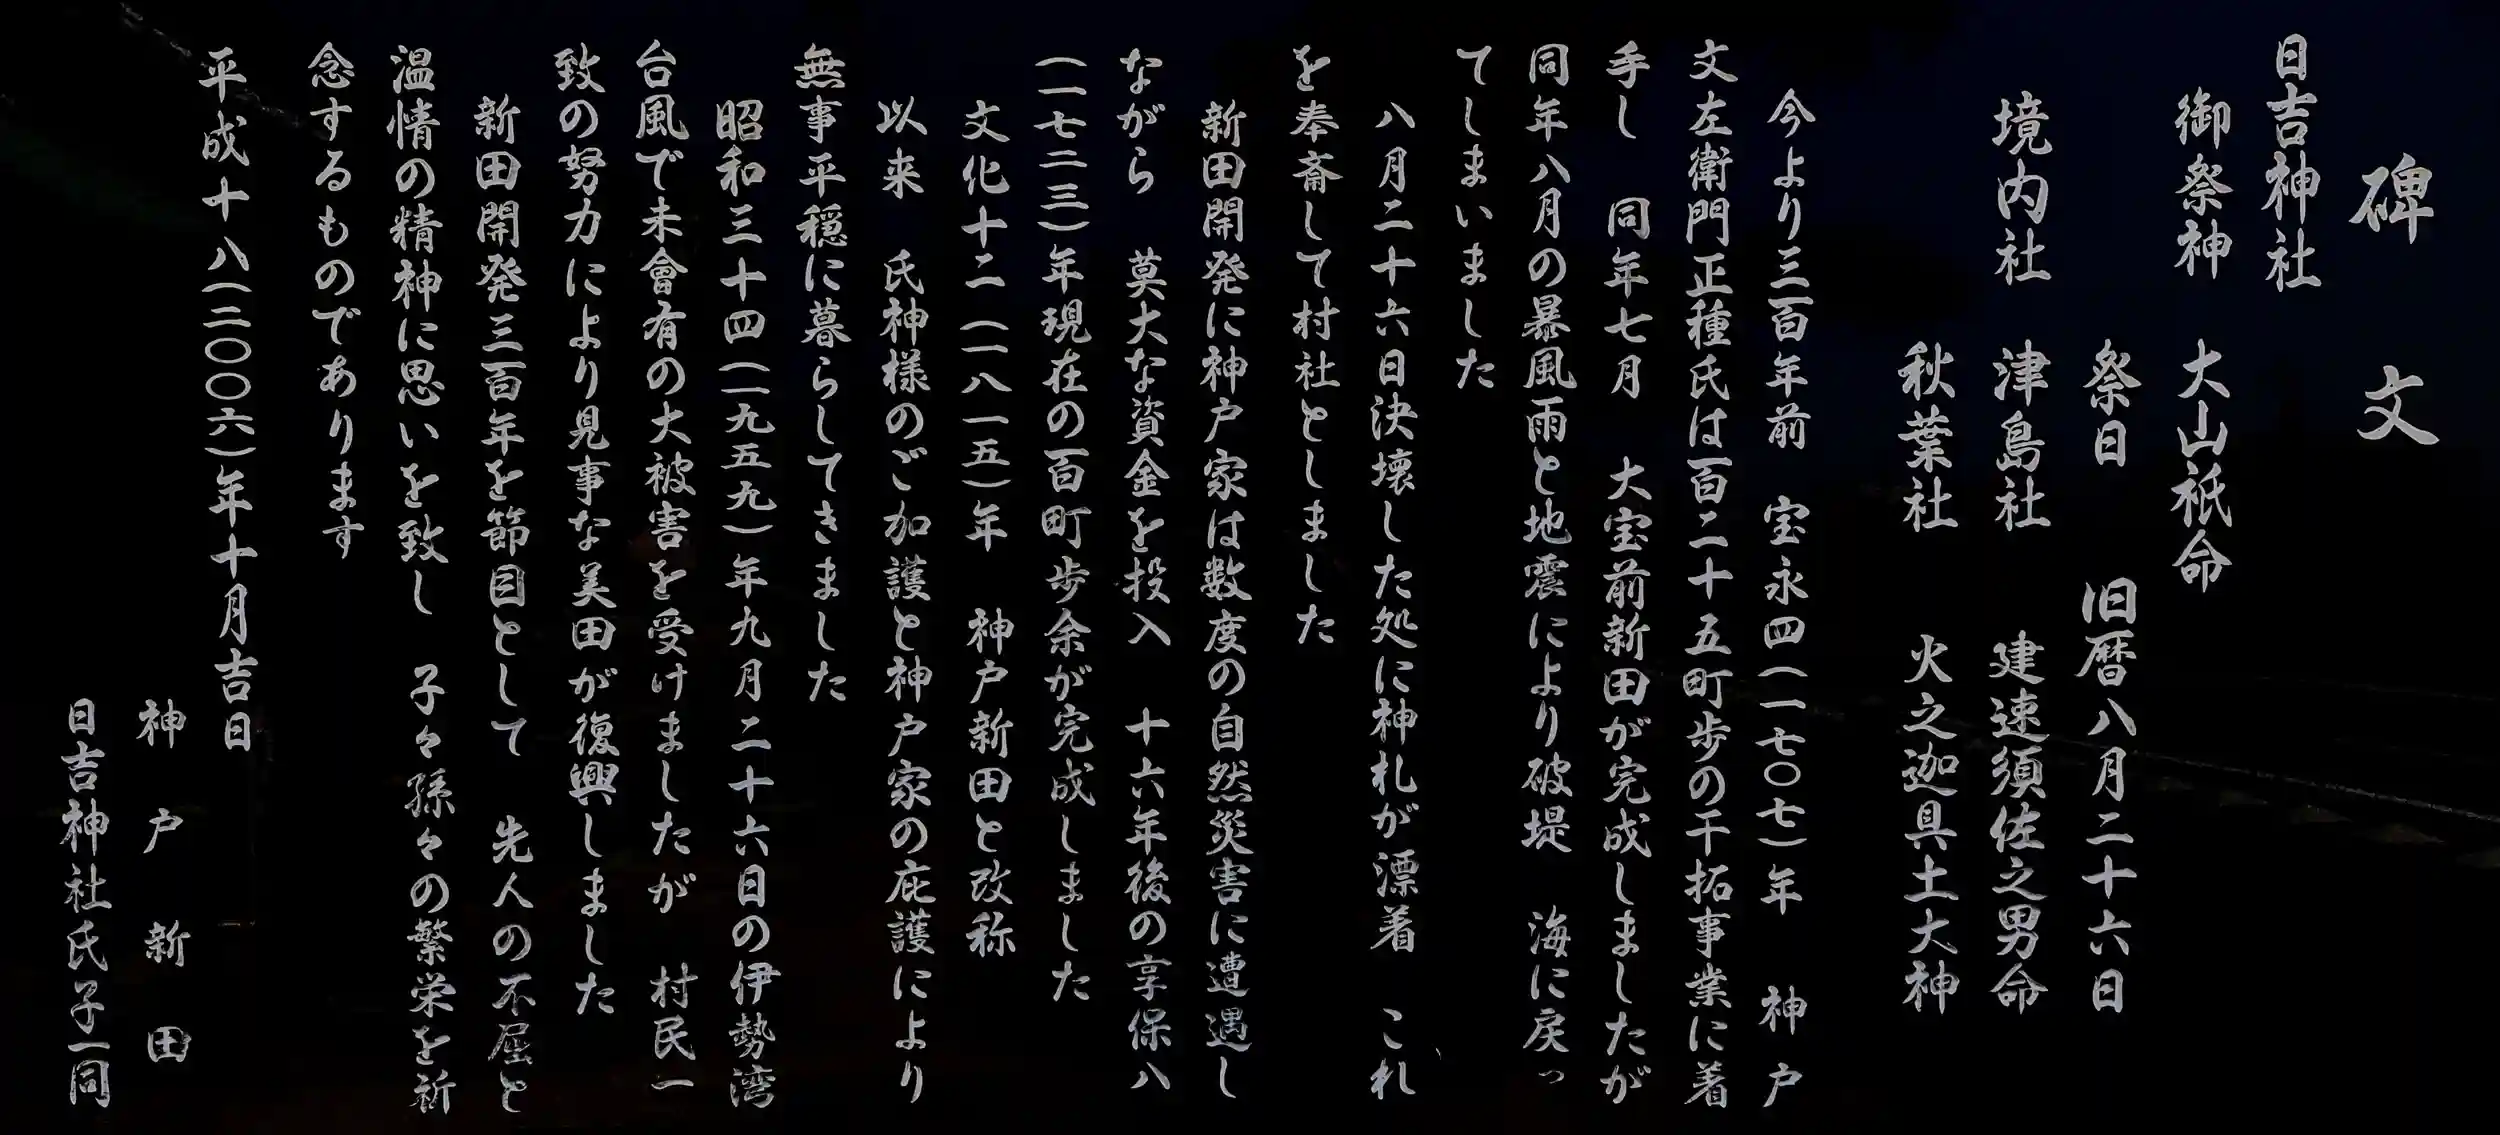 碑　文
日吉神社
御祭神　大山祇命
祭日　旧暦八月二十六日
境内社　津島社　建速須佐之男命
秋葉社　火之迦具土大神
今より三百年前　宝永四（一七〇七）年　神戸
文左衛門正種氏は百二十五町歩の干拓事業に着
手し　同年七月　大宝前新田が完成しましたが
同年八月の暴風雨と地震により破堤　海に戻っ
てしまいました
八月二十六日決壊した処に神札が漂着　これ
を奉斎して村社としました
新田開発に神戸家は数度の自然災害に遭遇し
ながら　莫大な資金を投入　十六年後の享保八
（一七二三）年現在の百町歩余が完成しました
文化十二（一八一五）年　神戸新田と改称
以来　氏神様のご加護と神戸家の庇護により
無事平穏に暮らしてきました
昭和三十四（一九五九）年九月二十六日の伊勢湾
台風で未會有の大被害を受けましたが　村民一
致の努力により見事な美田が復興しました
新田開発三百年を節目として　先人の不屈と
温情の精神に思いを致し　子々孫々の繁栄を祈
念するものであります
平成十八（二〇〇六）年十月吉日
神戸新田
日吉神社氏子一同